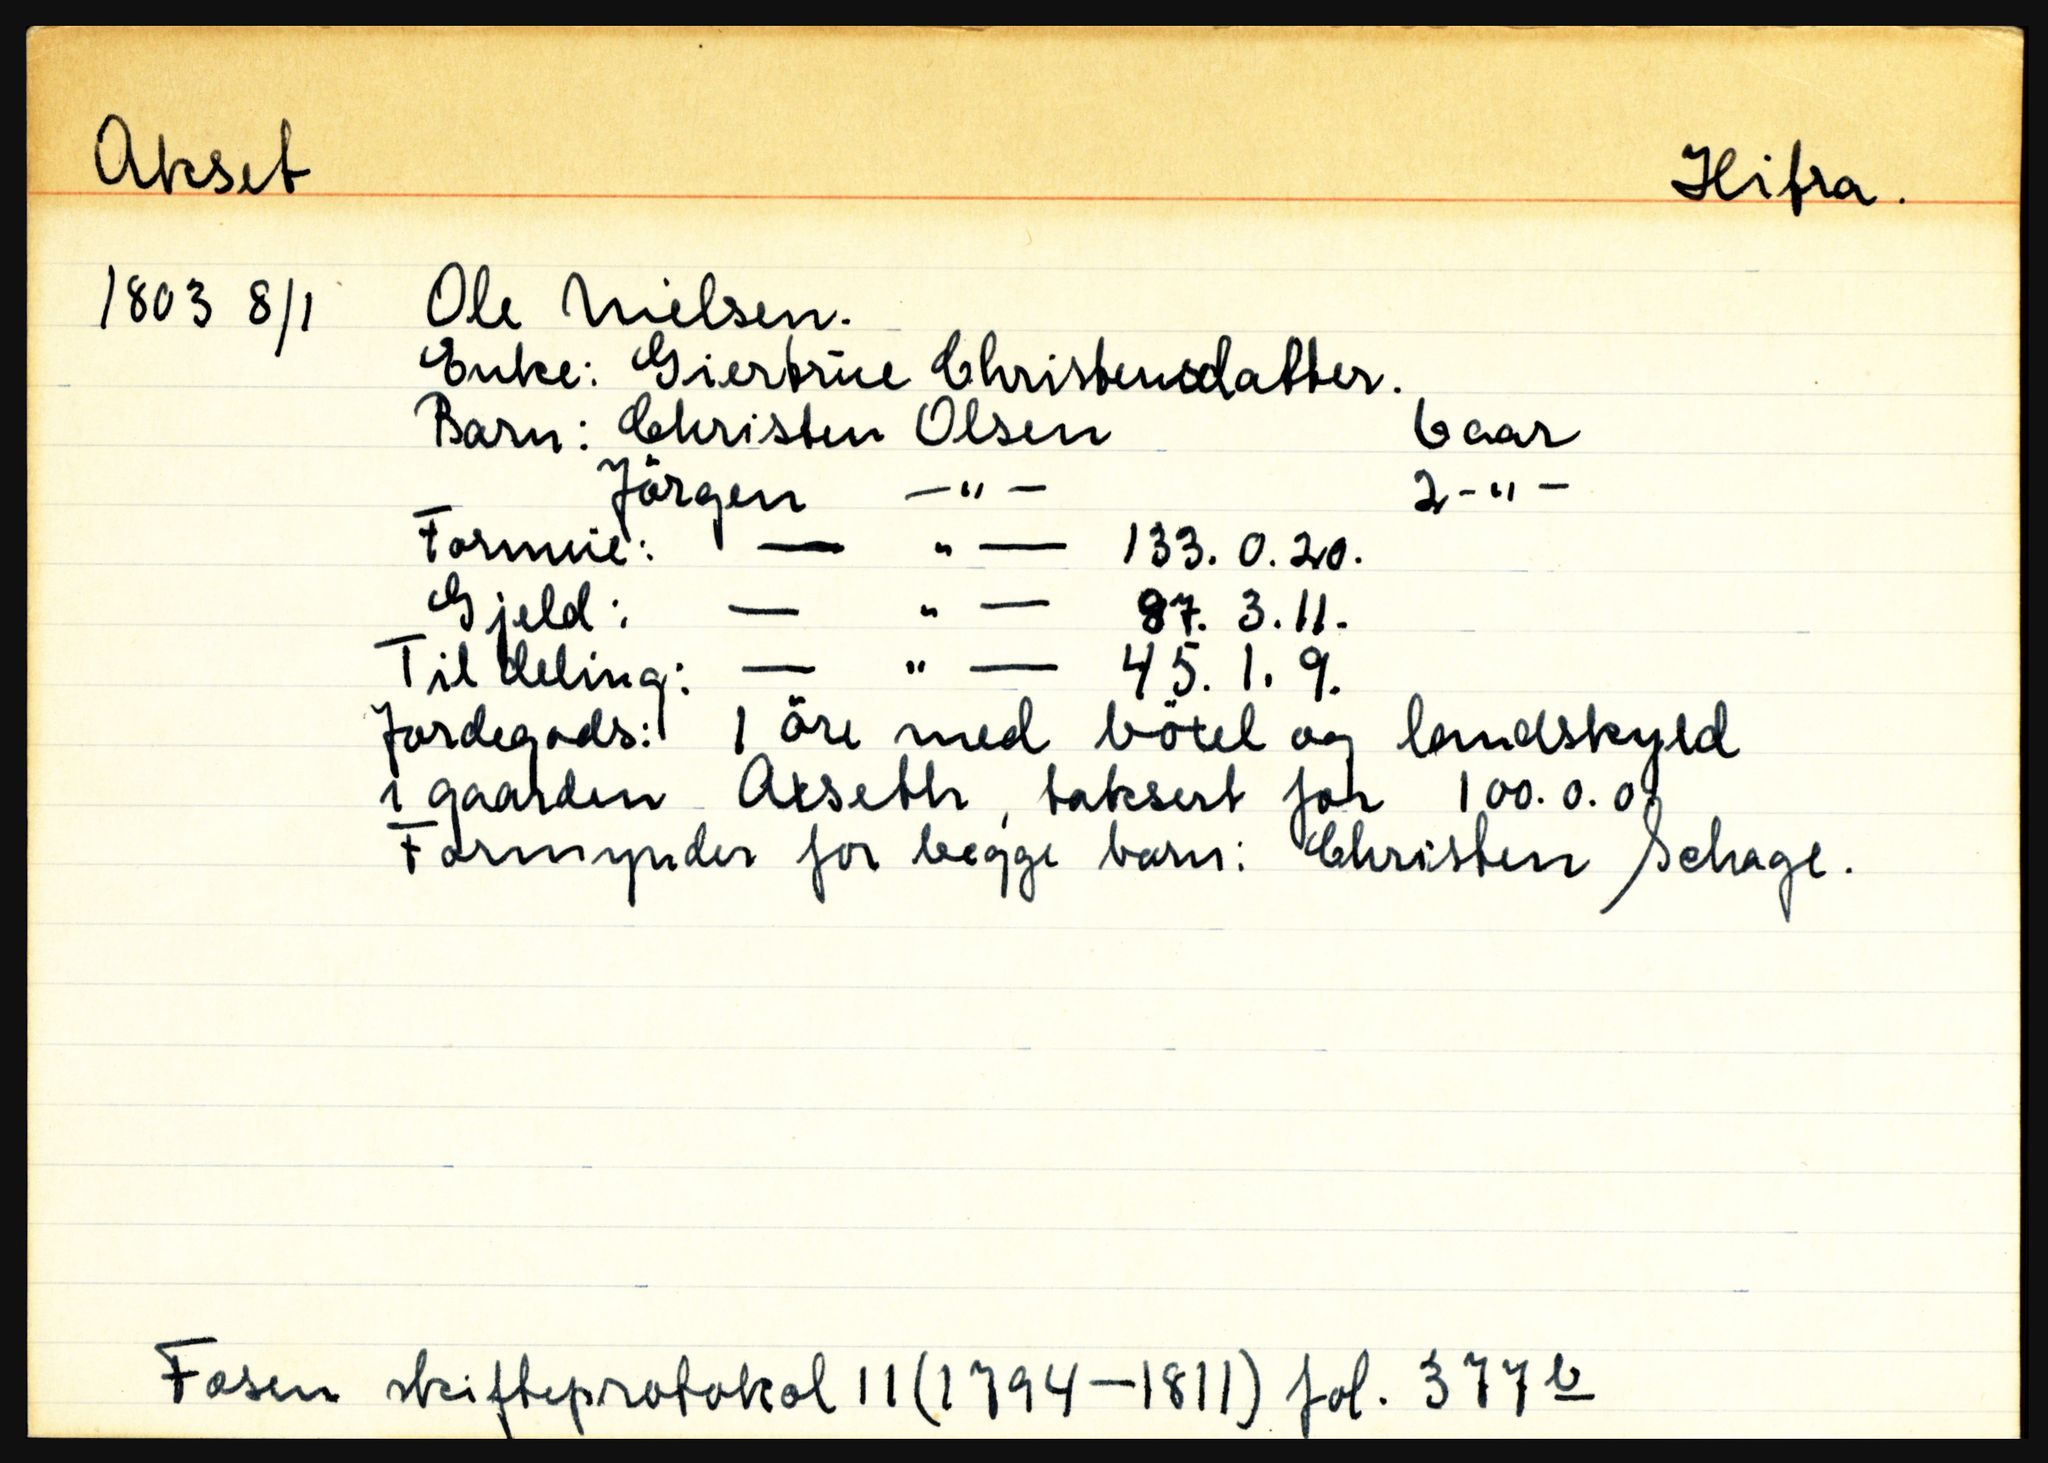 Akset Hitra.
1803 8/1 Ole Nielsen.
Enke: Giertrue Christensdatter.
Barn: Christen Olsen 6 aar
Jörgen -"- 2-"-
Formue: — " — 133. 0. 20.
Gjeld: — " — 87. 3. 11.
Til deling: — " — 45. 1. 9.
Jordegods: 1 öre med böxel og landskyld
i gaarden Axseth, taksert for 100. 0. 0
Formynder for begge barn: Christen Schage.
Fosen skifteprotokol 11 (1794-1811) fol. 377 b